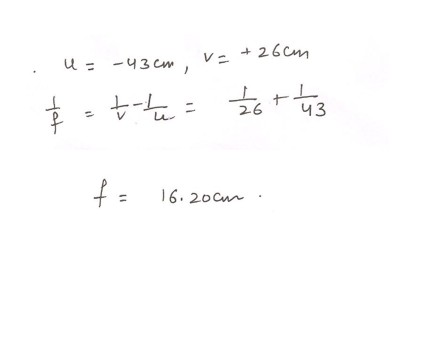 . u = -43cm, v = +26cm
1/f = 1/v - 1/u = 1/26 + 1/43
f = 16.20cm.